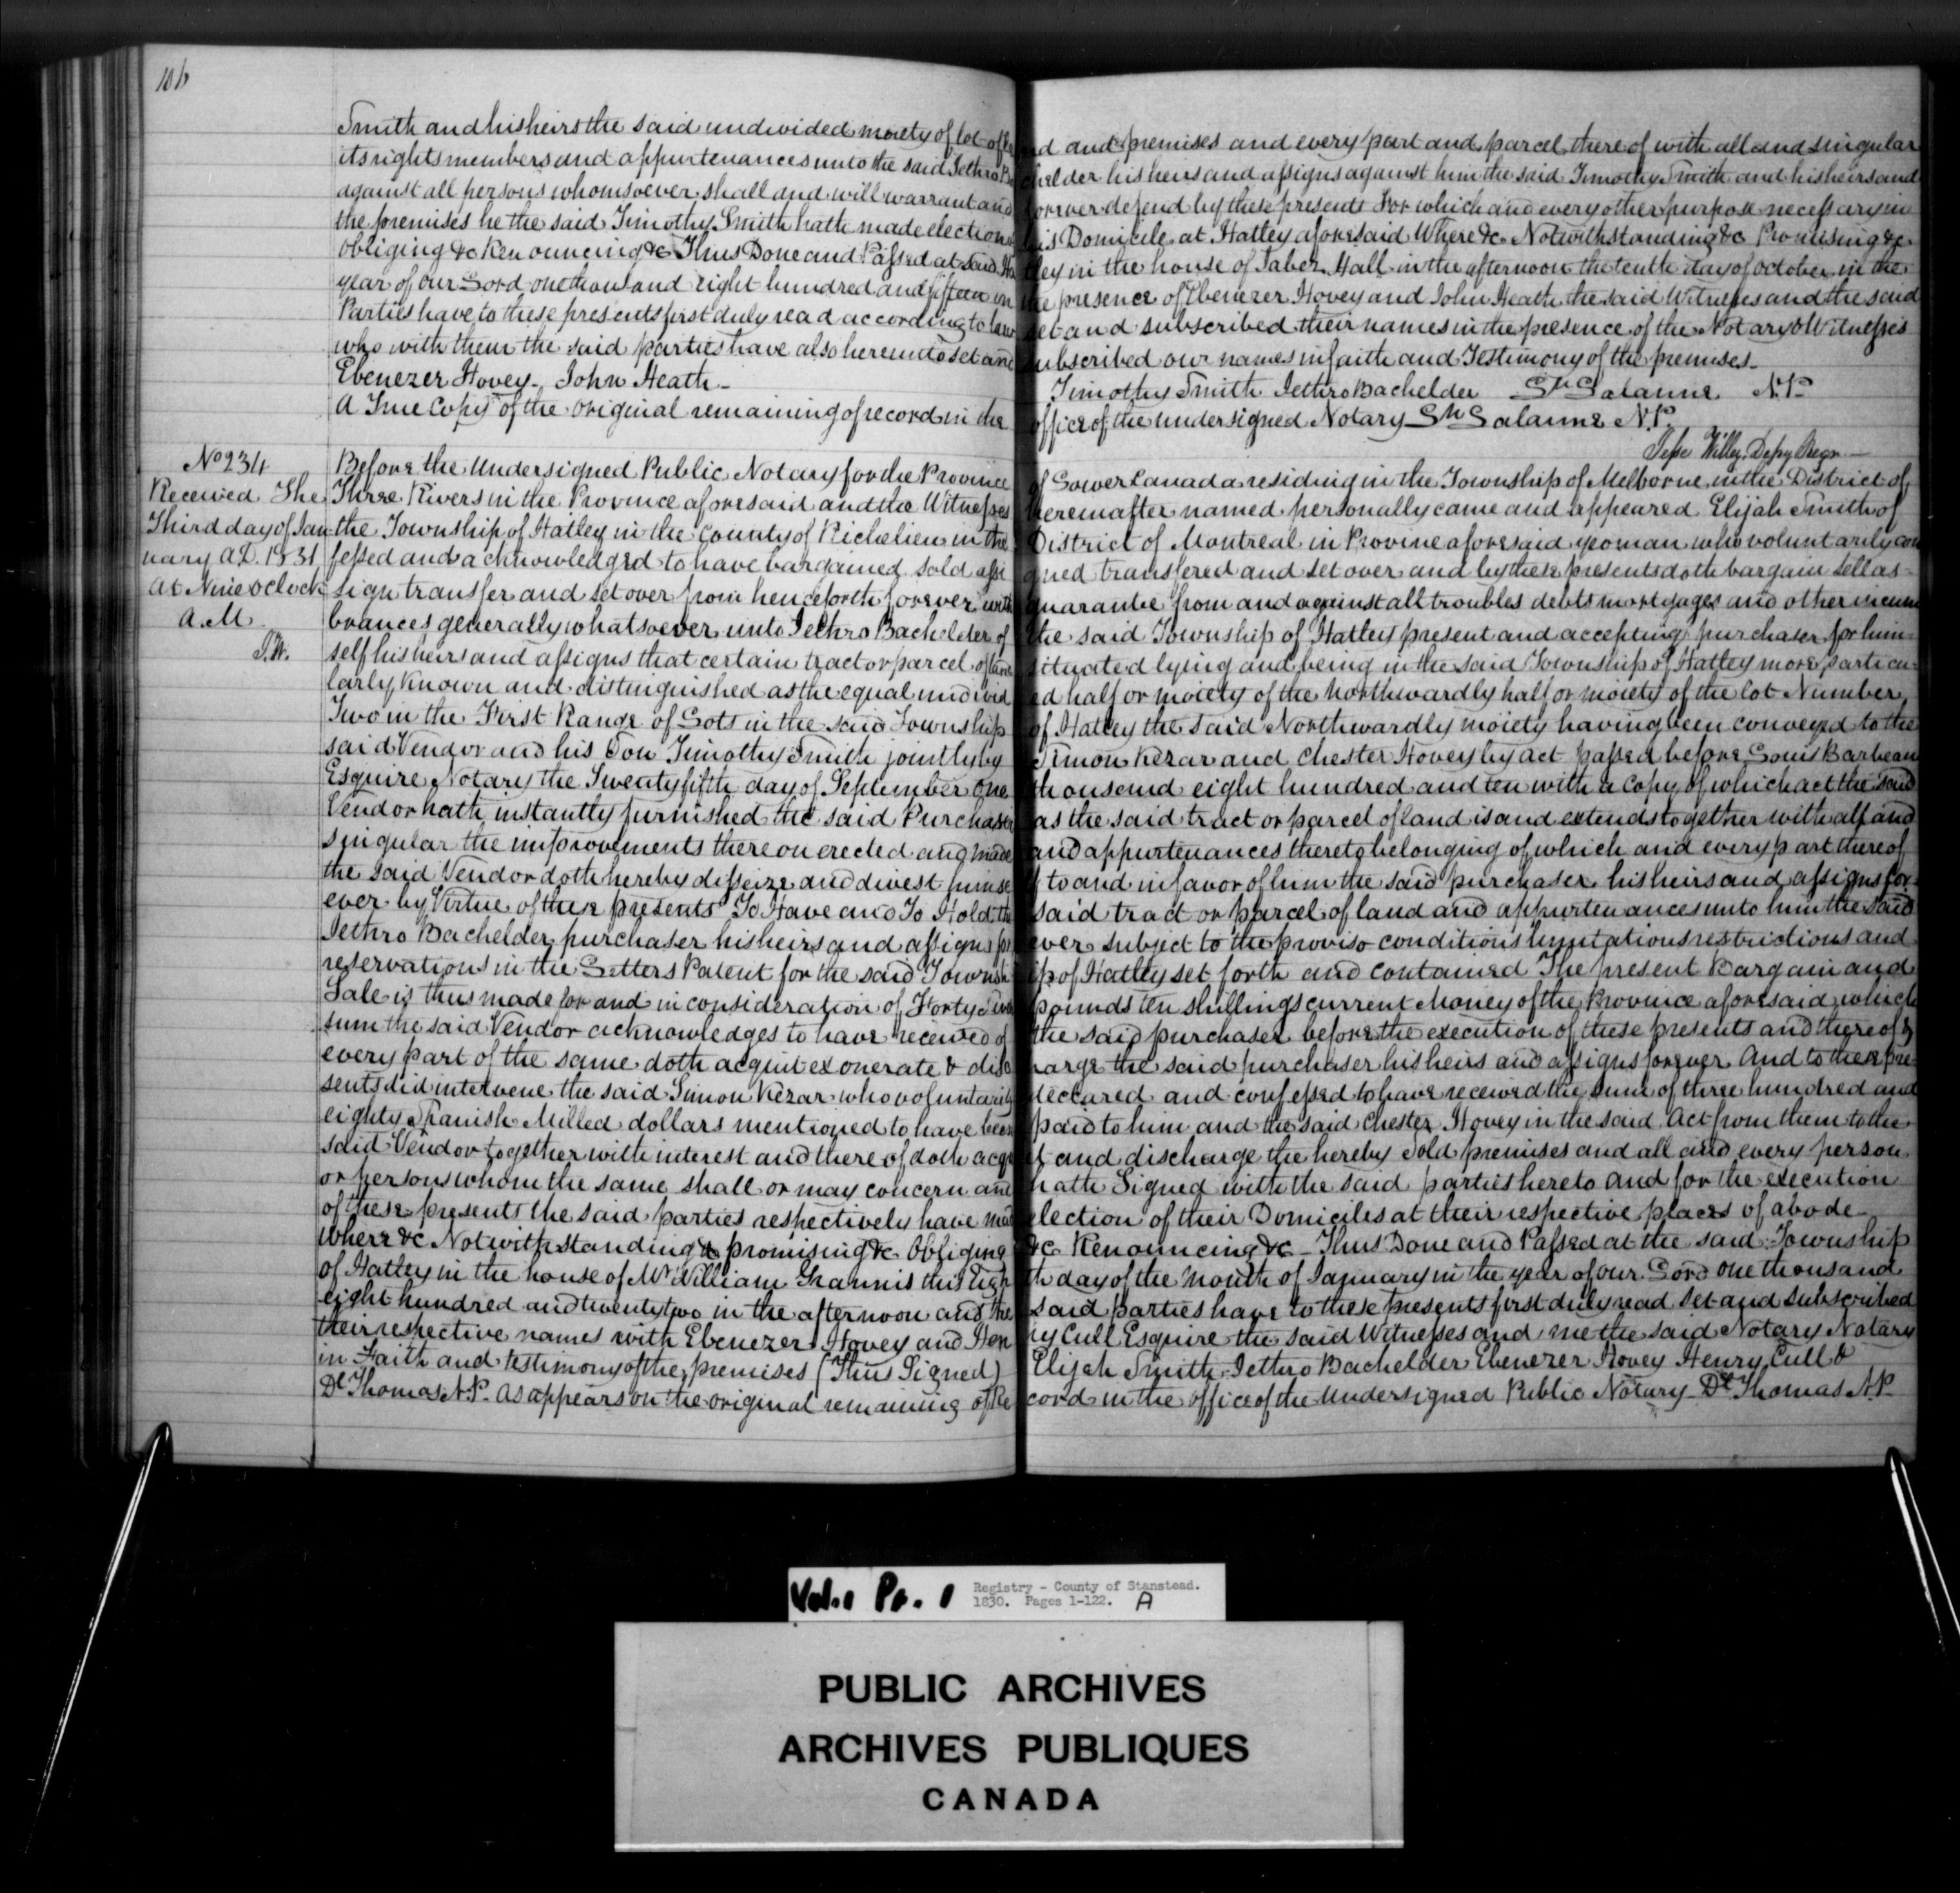 106
Smith and his heirs the said undivided moiety of lot of land and premises and every part and parcel thereof with all and singular
its rights members and appurtenances unto the said Jethro Bachelder his heirs and assigns against him the said Timothy Smith and his heirs and
against all persons whomsoever shall and will warrant and forever defend by these presents For which and every other purpose necessary in
the premises he the said Timothy Smith hath made election of his Domicile at Hatley aforesaid Where &c Notwithstanding &c Promising &c
Obliging &c Renouncing &c Thus Done and Passed at said Hatley in the house of Taber Hall in the afternoon the tenth day of october in the
year of our Lord one thousand eight hundred and fifteen in the presence of Ebenezer Hovey and John Heath the said Witnesses and the said
Parties have to these presents first duly read according to law set and subscribed their names in the presence of the Notary & Witnesses
who with them the said parties have also hereunto set and subscribed our names in faith and Testimony of the premises_
Ebenezer Hovey_ John Heath_ Timothy Smith Jethro Bachelder Sn Lalanne N.P.
A True Copy of the original remaining of record in the office of the undersigned Notary Sn Lalanne N.P.
Jesse Willey, Depy Regr
No 234
Received The
Third day of Jan
uary A.D. 1831
At Nine oclock
A.M.
J.W.
Before the Undersigned Public Notary for the Province of Lower Canada residing in the Township of Melborne in the District of
Three Rivers in the Province aforesaid and the Witnesses hereinafter named personally came and appeared Elijah Smith of
the Township of Hatley in the County of Richelieu in the District of Montreal in Provine aforesaid yeoman who voluntarily con
fessed and acknowledged to have bargained sold assigned transfered and set over and by these presents doth bargain sell as-
sign transfer and set over from henceforth forever with guarantee from and against all troubles debts mortgages and other incum
brances generally whatsoever unto Jethro Bachelder of the said Township of Hatley present and accepting purchaser for him-
self his heirs and assigns that certain tract or parcel of land situated lying and being in the said Township of Hatley more particu-
larly known and distinguished as the equal undivided half or moiety of the Northwardly half or moiety of the lot Number
Two in the First Range of Lots in the said Township of Hatley the said Northwardly moiety having been conveyed to the
said Vendor and his Son Timothy Smith jointly by Simon Kezar and Chester Hovey by act passed before Louis Barbeau
Esquire Notary the Twenty fifth day of September one thousand eight hundred and ten with a Copy of which act the said
Vendor hath instantly furnished the said Purchaser as the said tract or parcel of land is and extends together with all and
singular the improvements thereon erected and made and appurtenances thereto belonging of which and every part thereof
the said Vendor doth hereby disseize and divest himself to and in favor of him the said purchaser his heirs and assigns for-
ever by Virtue of these presents To Have and To Hold the said tract or parcel of land and appurtenances unto him the said
Jethro Bachelder purchaser his heirs and assigns for ever subject to the proviso conditions limitations restrictions and
reservations in the Letters Patent for the said Township of Hatley set forth and contained The present Bargain and
Sale is thus made for and in consideration of Forty pounds ten shillings current Money of the Province aforesaid which
sum the said Vendor acknowledges to have received of the said purchaser before the execution of these presents and thereof &
every part of the same doth acquit exonerate & discharge the said purchaser his heirs and assigns forever And to these pre-
sents did intervene the said Simon Kezar who voluntarily declared and confessed to have received the sum of three hundred and
eighty Spanish Milled dollars mentioned to have been paid to him and the said Chester Hovey in the said Act from them to the
said Vendor together with interest and thereof doth acquit and discharge the hereby sold premises and all and every person
or persons whom the same shall or may concern and hath Signed with the said parties hereto And for the execution
of these presents the said parties respectively have made election of their Domiciles at their respective places of abode_
Where &c Notwithstanding & promising &c Obliging &c Renouncing &c_ Thus Done and Passed at the said Township
of Hatley in the house of Mr William Grannis this Eighth day of the Month of January in the year of our Lord one thousand
eight hundred and twenty two in the afternoon and the said parties have to these presents first duly read set and subscribed
their respective names with Ebenezer Hovey and Henry Cull Esquire the said Witnesses and me the said Notary Notary
in Faith and testimony of the premises (Thus Signed) Elijah Smith Jethro Bachelder Ebenezer Hovey Henry Cull &
Dl Thomas N.P. As appears on the original remaining of Record in the office of the Undersigned Public Notary_ Dl Thomas N.P.
Vol. 1 Pt. 1
Registry - County of Stanstead.
1830. Pages 1-122. A
PUBLIC ARCHIVES
ARCHIVES PUBLIQUES
CANADA